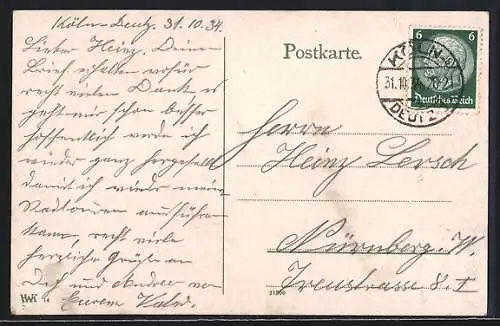 Köln-Deutz, 31.10.34.
Lieber Heinz. Deinen
Brief erhalten wofür
recht vielen Dank es
geht mir schon besser
hoffentlich werde ich
wieder ganz hergestellt
damit ich wieder meine
Radtouren ausführen
kann, recht viele
herzliche Grüße an
Dich und von
Eurem
HWK
Postkarte.
6 6
Deutsches Reich
KÖLN
31.10.34
DEUTZ
Herrn
Heinz Lersch
Nürnberg. W.
8. I